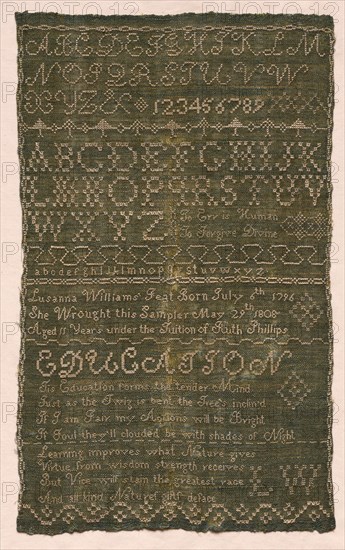 ABCDEFGHIKLM
NOPQRSTUVW
XYZ& 123456789
ABCDEFGHIJK
LMNOPQRSTUV
WXYZ To Err is Human
To Forgive Divine
abcdefghijklmnopqrstuvwxyz
Lusanna Williams Born July 6th 1796
She Wrought this Sampler May 29th 1808
Aged 11 Years under the Tuition of Ruth Phillips
EDUCATION
Tis Education forms the tender Mind
Just as the Twig is bent the Tree's inclin'd
If I am Fair my Actions will be Bright
If Foul they'll clouded be with shades of Night
Learning improves what Nature gives
Virtue from wisdom strength receives
But Vice will stain the greatest race
And all kind Natures gifts deface
LW